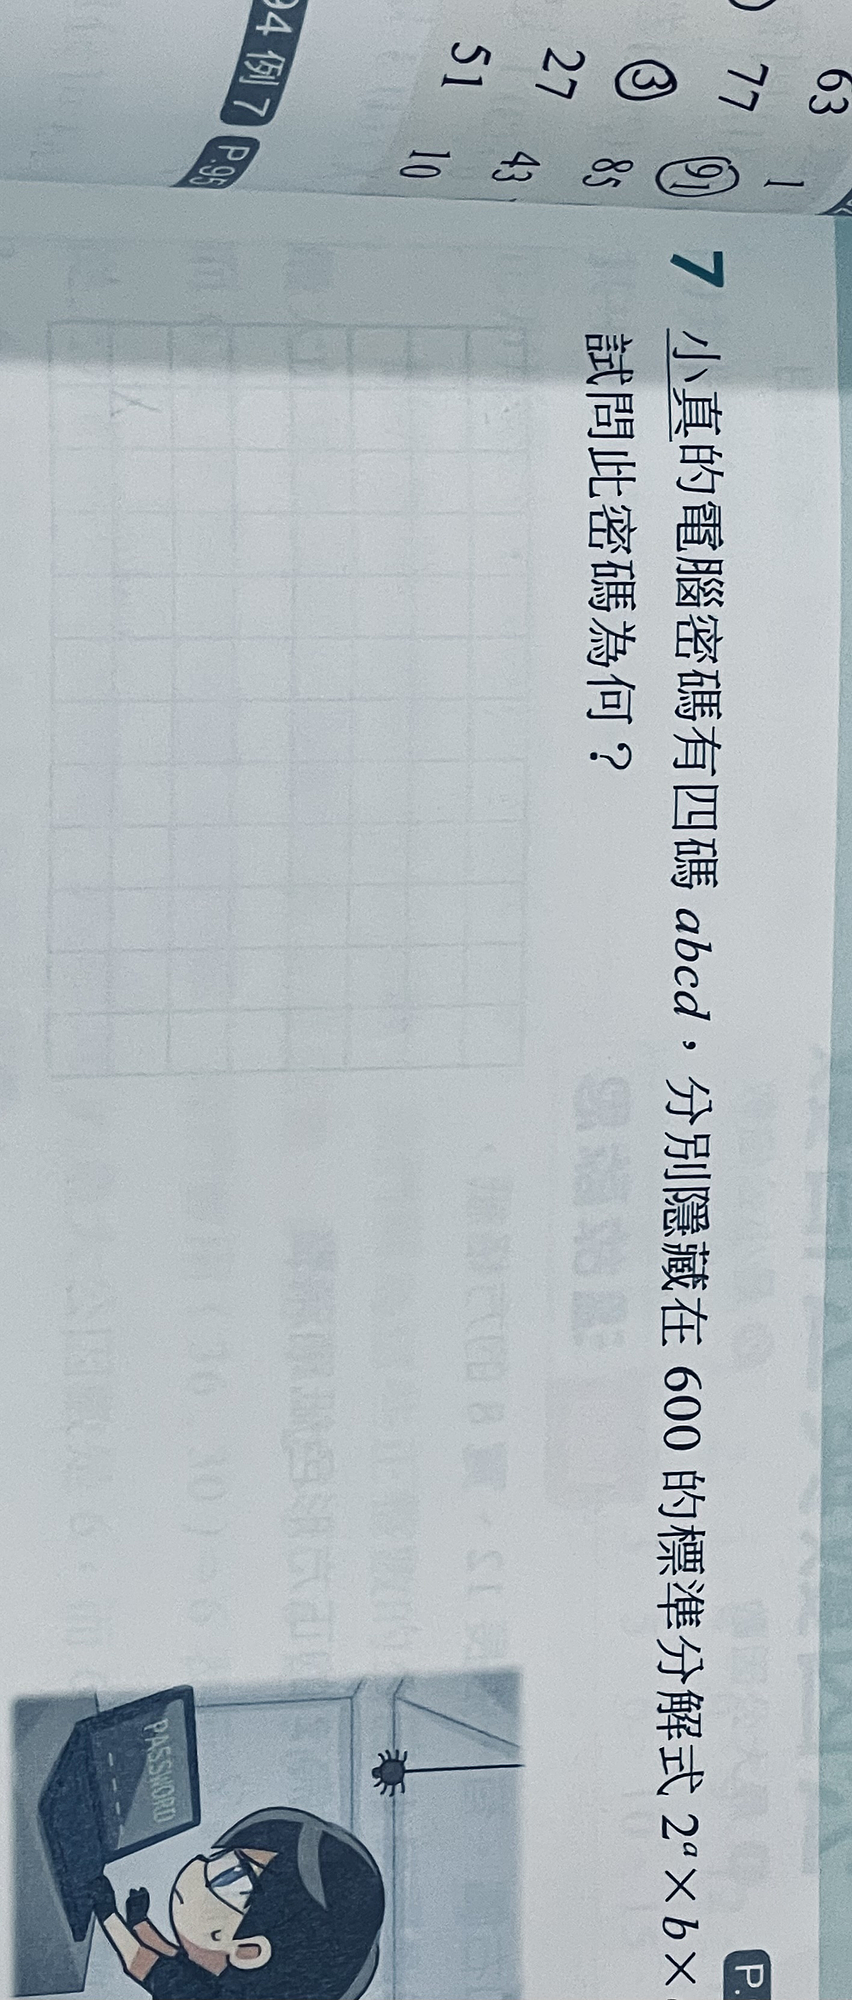 63 1
77 91
3 85
27 43
51 10
94 例 7 P.95
P.
7 小真的電腦密碼有四碼 abcd，分別隱藏在 600 的標準分解式 2ᵃ×b×
試問此密碼為何？
PASSWORD